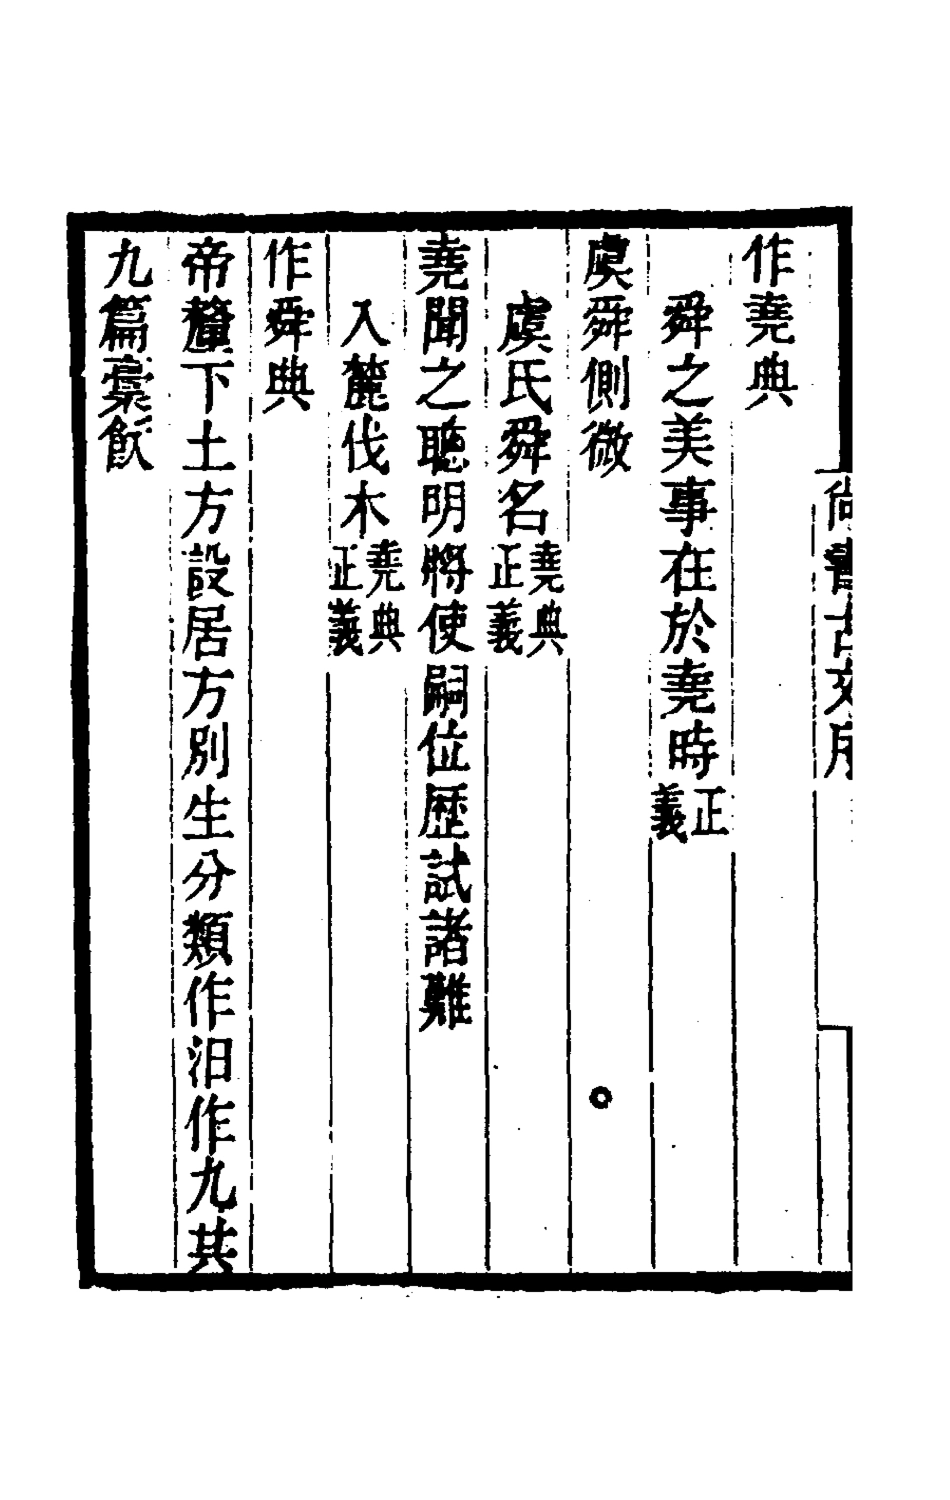 尚書古文序
作堯典
舜之美事在於堯時正義
虞舜側微
虞氏舜名堯典正義
堯聞之聰明將使嗣位歷試諸難
入麓伐木堯典正義
作舜典
帝釐下土方設居方別生分類作汨作九共
九篇槀飫